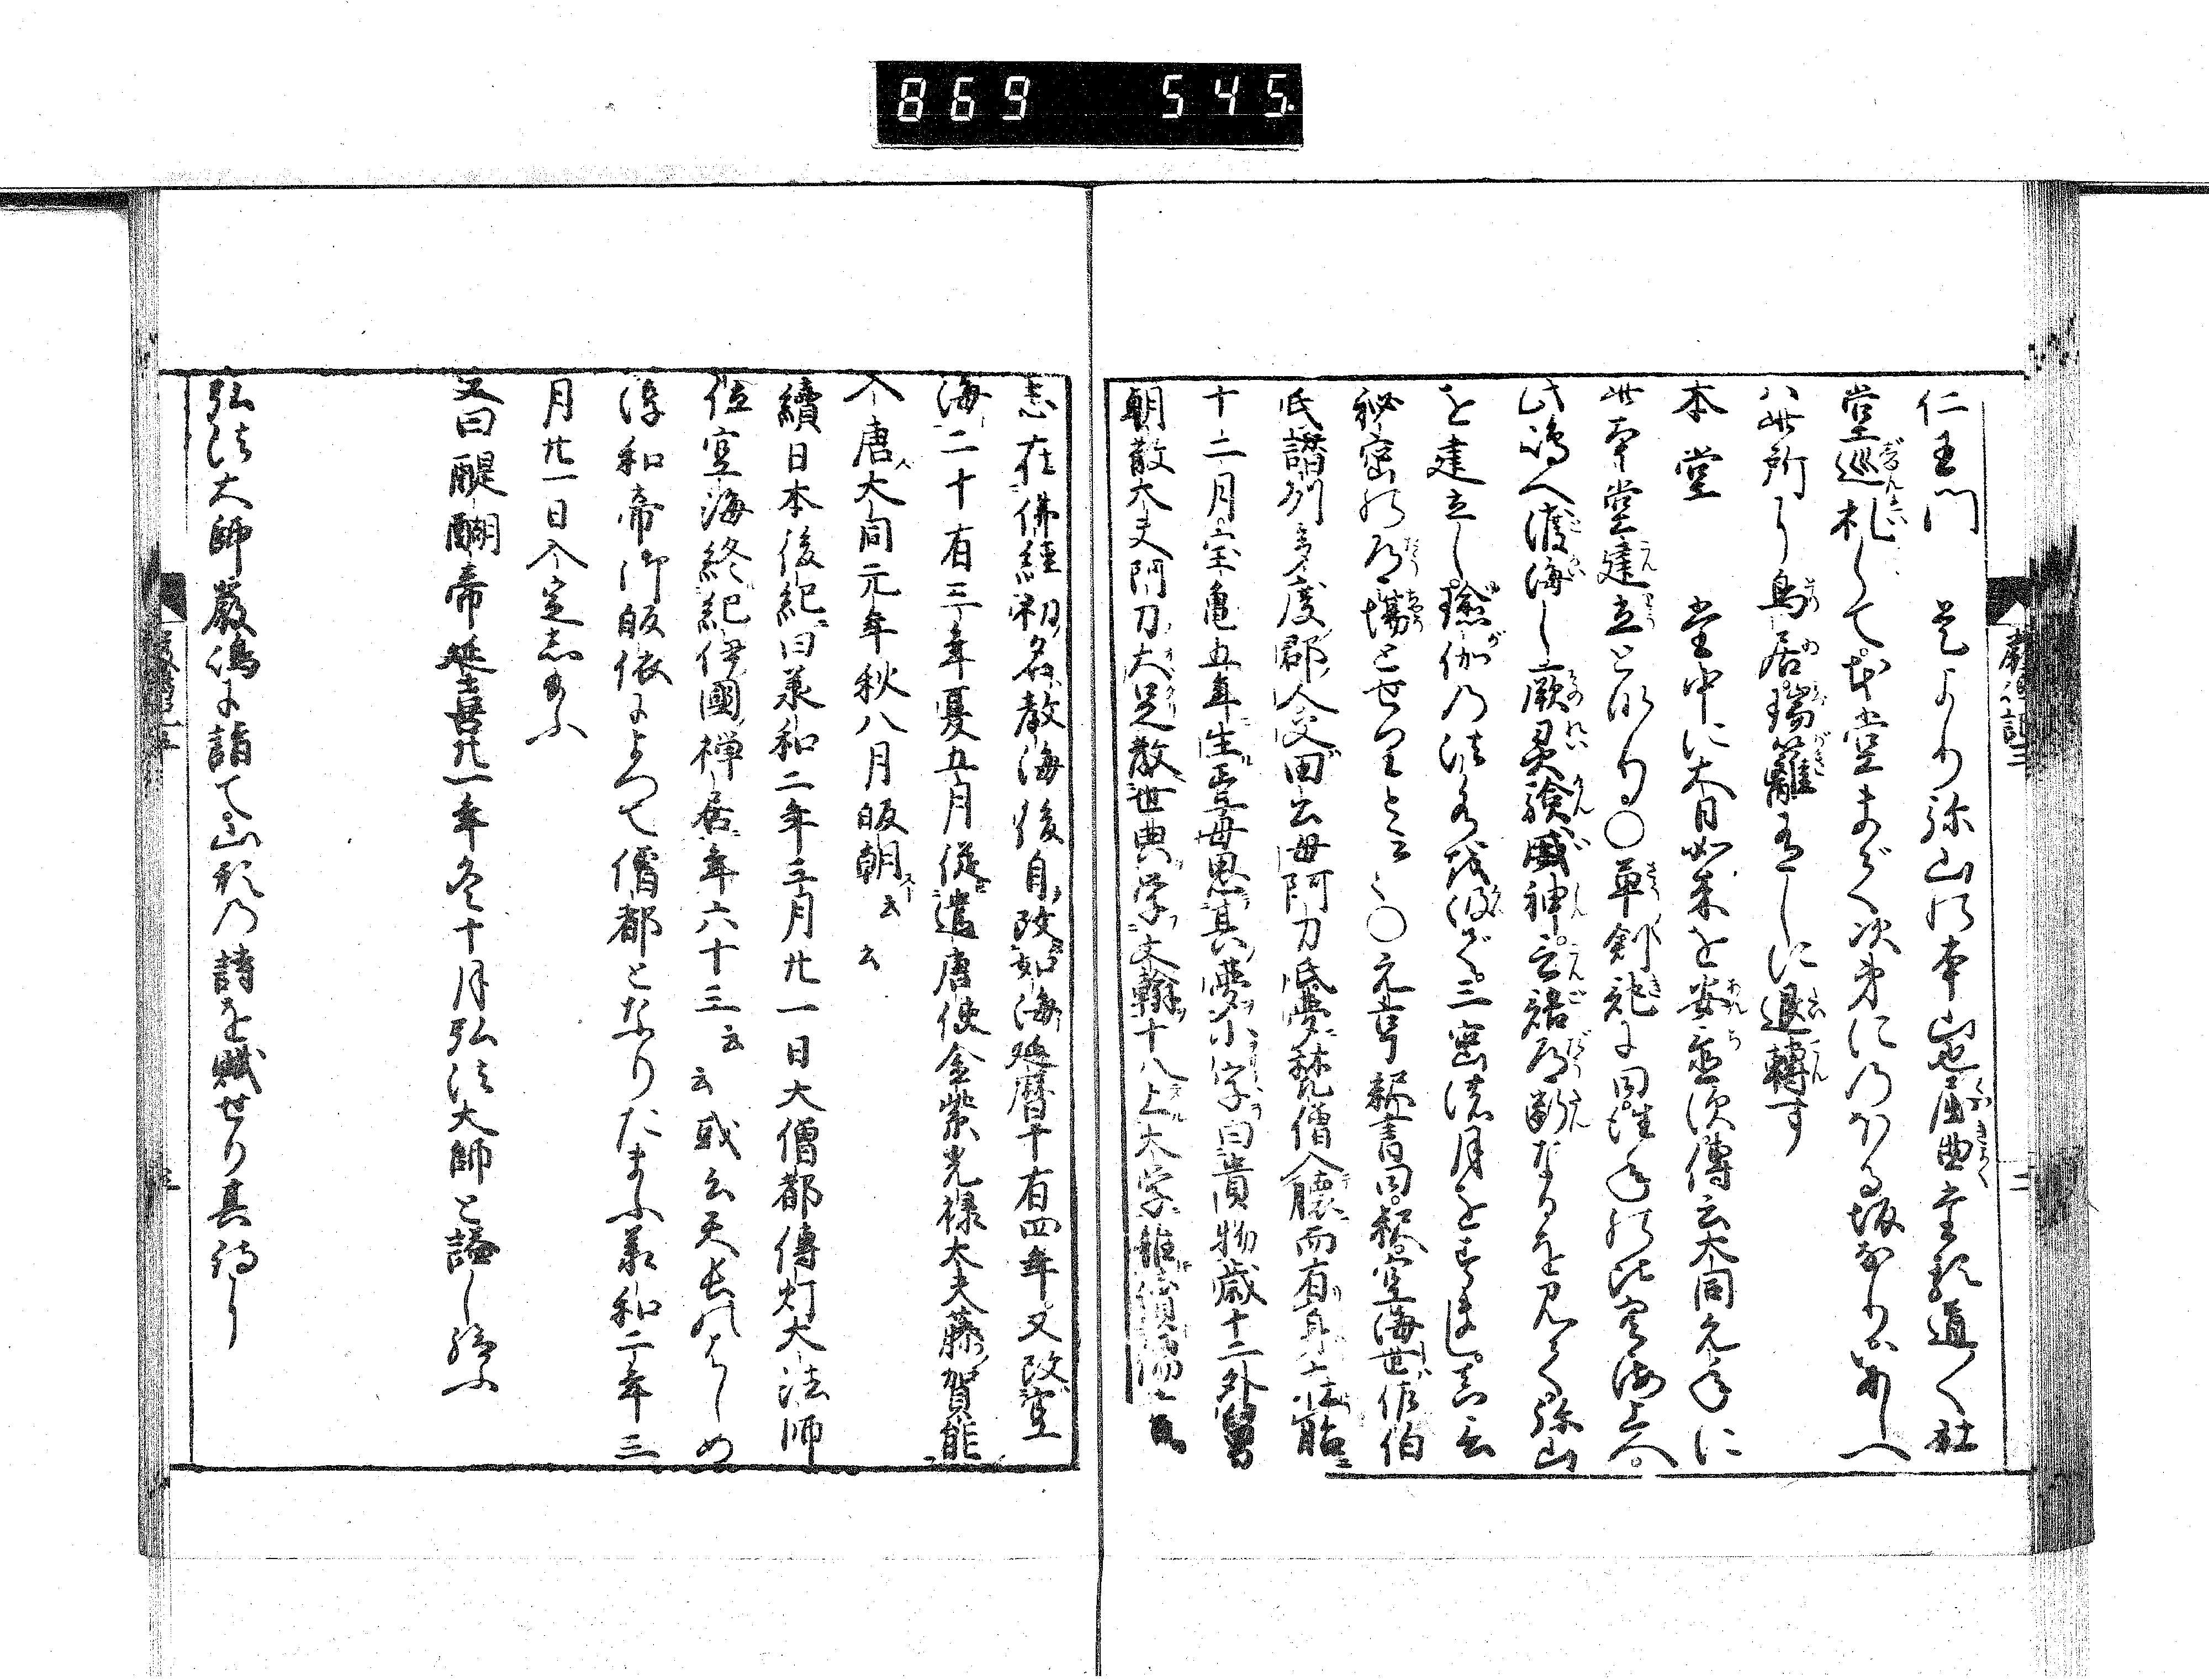 869 545
仁王門 是より弥山の本山也屈曲重々道く社
堂巡礼して本堂まで次第にのぼる坂なりいにしへ
ハ此所に鳥居瑞籬有しに退轉す
本堂 堂中に大日如来を安置須傳云大同元年に
此本堂建立と所り〇草創記に曰
此嶋へ渡海し厥灵驗威神言語道断なるを見て弥山
を建立し瑜伽の法水を汲で三密渡月をすまし真言
秘密の道場と世里と云々〇元亨釈書曰釈空海世佐伯
氏讃州多度郡人父田公母阿刀氏夢梵僧入懐而有身在胎
十二月宝亀五年生焉母思其夢小字曰貴物歳十二外舅
朝散大夫阿刀大足教世典学文翰十八上大学雖
志在佛経初名教海後自改如海延暦十有四年又改空
海二十有三年夏五月從遣唐使金紫光禄大夫藤賀能
入唐大同元年秋八月皈朝云云
續日本後紀曰羕和二年三月廿一日大僧都傳灯大法師
位空海終紀伊國禅居年六十三云云或云天長のはじめ
淳和帝御皈依によつて僧都となりたまふ羕和二年三
月廿一日入定志玉ふ
又曰醍醐帝延喜廿一年冬十月弘法大師と諡し給ふ
弘法大師厳嶋に詣て山形の詩を賦せり其詩に